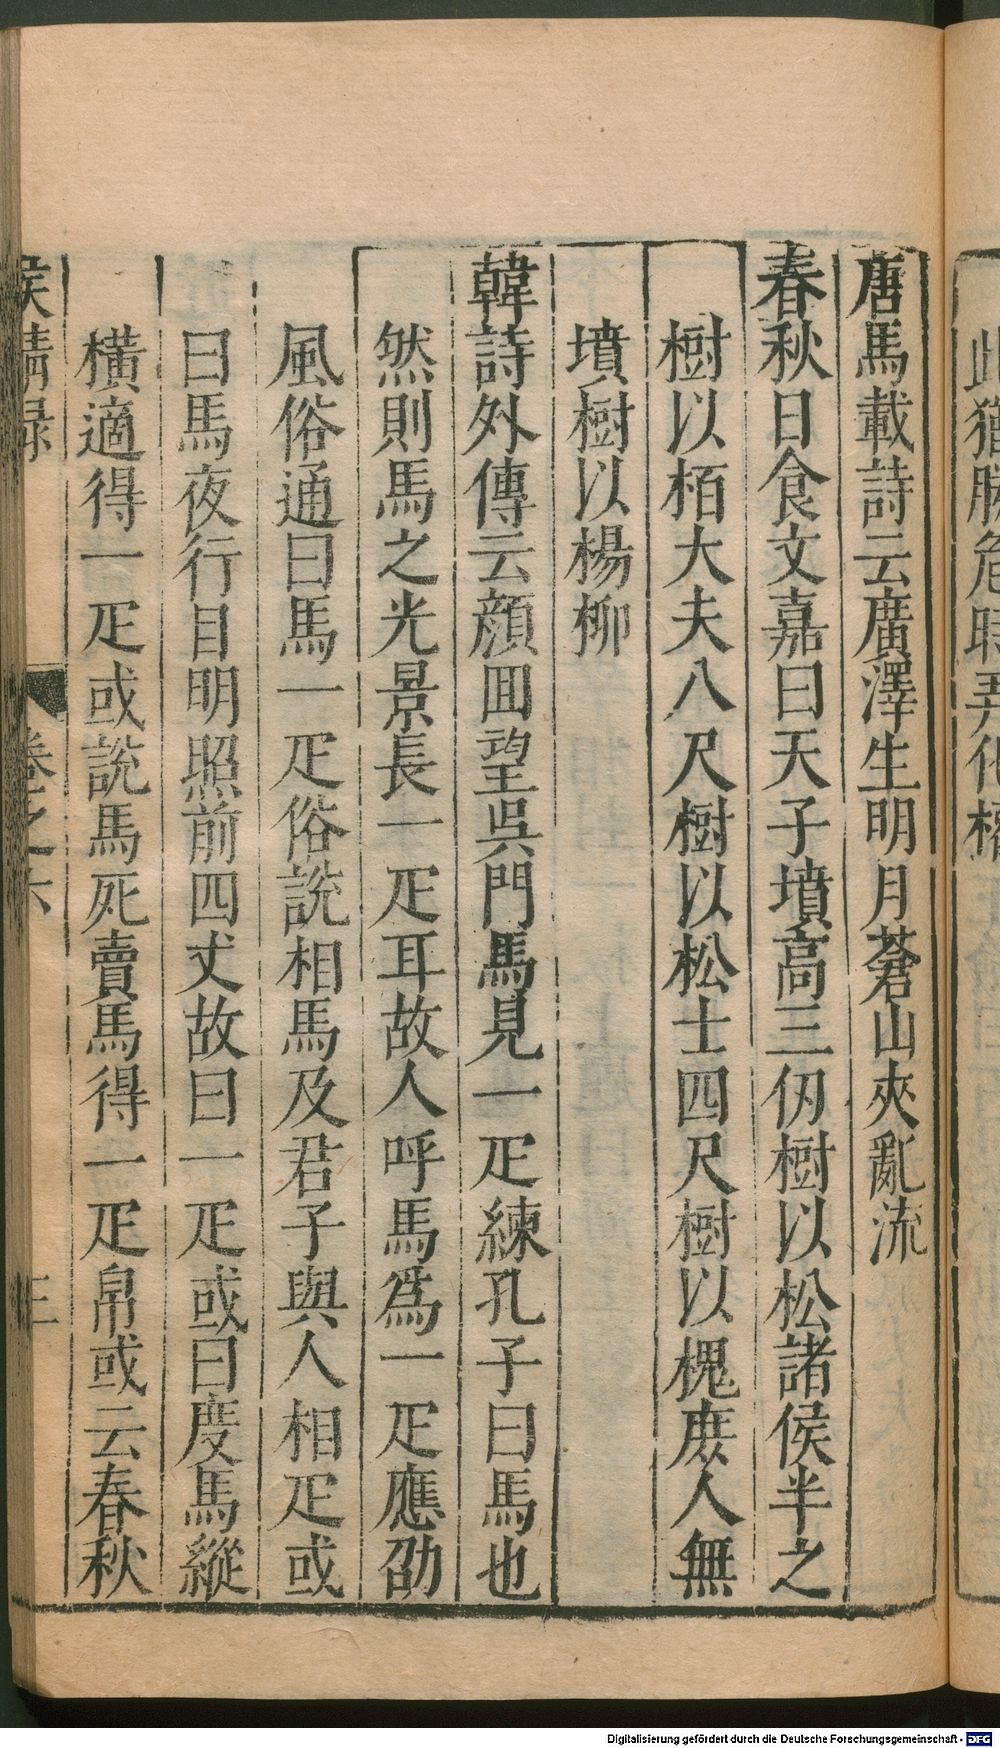 此猶勝危時弄化權
唐馬載詩云廣澤生明月蒼山夾亂流
春秋日食文嘉曰天子墳高三仞樹以松諸侯半之
樹以栢大夫八尺樹以松士四尺樹以槐庶人無
墳樹以楊柳
韓詩外傳云顔囬望呉門馬見一疋練孔子曰馬也
然則馬之光景長一疋耳故人呼馬爲一疋應劭
風俗通曰馬一疋俗說相馬及君子與人相疋或
曰馬夜行目明照前四丈故曰一疋或曰度馬縱
橫適得一疋或說馬死賣馬得一疋帛或云春秋
侯鯖録 卷之六 三
Digitalisierung gefördert durch die Deutsche Forschungsgemeinschaft - DFG